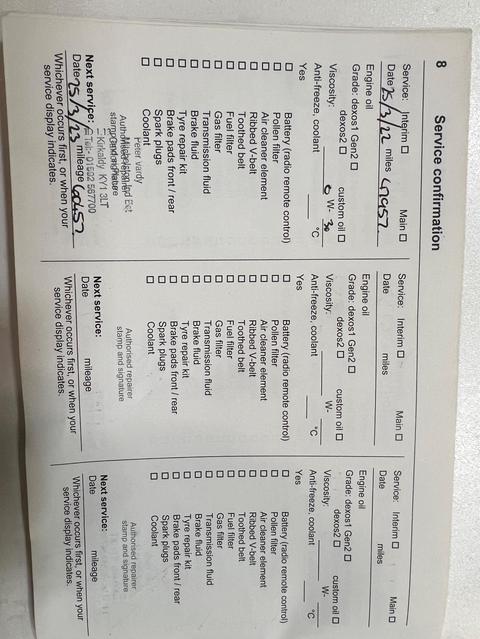 8 Service confirmation
Service: Interim ☐ Main ☐
Date 25/3/22 miles 47957
Engine oil
Grade: dexos1 Gen2 ☐
dexos2 ☐ custom oil ☐
Viscosity: 0 W- 30
Anti-freeze, coolant °C
Yes
☐ Battery (radio remote control)
☐ Pollen filter
☐ Air cleaner element
☐ Ribbed V-belt
☐ Toothed belt
☐ Fuel filter
☐ Gas filter
☐ Transmission fluid
☐ Brake fluid
☐ Tyre repair kit
☐ Brake pads front / rear
☐ Spark plugs
☐ Coolant
Peter Vardy
Ind Est
Authorised repairer
stamp and signature
Kirkaldy KY1 3LT
Tel:-
Next service:
Date 25/3/23 mileage 60457
Whichever occurs first, or when your
service display indicates.
Service: Interim ☐ Main ☐
Date miles
Engine oil
Grade: dexos1 Gen2 ☐
dexos2 ☐ custom oil ☐
Viscosity: W-
Anti-freeze, coolant °C
Yes
☐ Battery (radio remote control)
☐ Pollen filter
☐ Air cleaner element
☐ Ribbed V-belt
☐ Toothed belt
☐ Fuel filter
☐ Gas filter
☐ Transmission fluid
☐ Brake fluid
☐ Tyre repair kit
☐ Brake pads front / rear
☐ Spark plugs
☐ Coolant
Authorised repairer
stamp and signature
Next service:
Date mileage
Whichever occurs first, or when your
service display indicates.
Service: Interim ☐ Main ☐
Date miles
Engine oil
Grade: dexos1 Gen2 ☐
dexos2 ☐ custom oil ☐
Viscosity: W-
Anti-freeze, coolant °C
Yes
☐ Battery (radio remote control)
☐ Pollen filter
☐ Air cleaner element
☐ Ribbed V-belt
☐ Toothed belt
☐ Fuel filter
☐ Gas filter
☐ Transmission fluid
☐ Brake fluid
☐ Tyre repair kit
☐ Brake pads front / rear
☐ Spark plugs
☐ Coolant
Authorised repairer
stamp and signature
Next service:
Date mileage
Whichever occurs first, or when your
service display indicates.